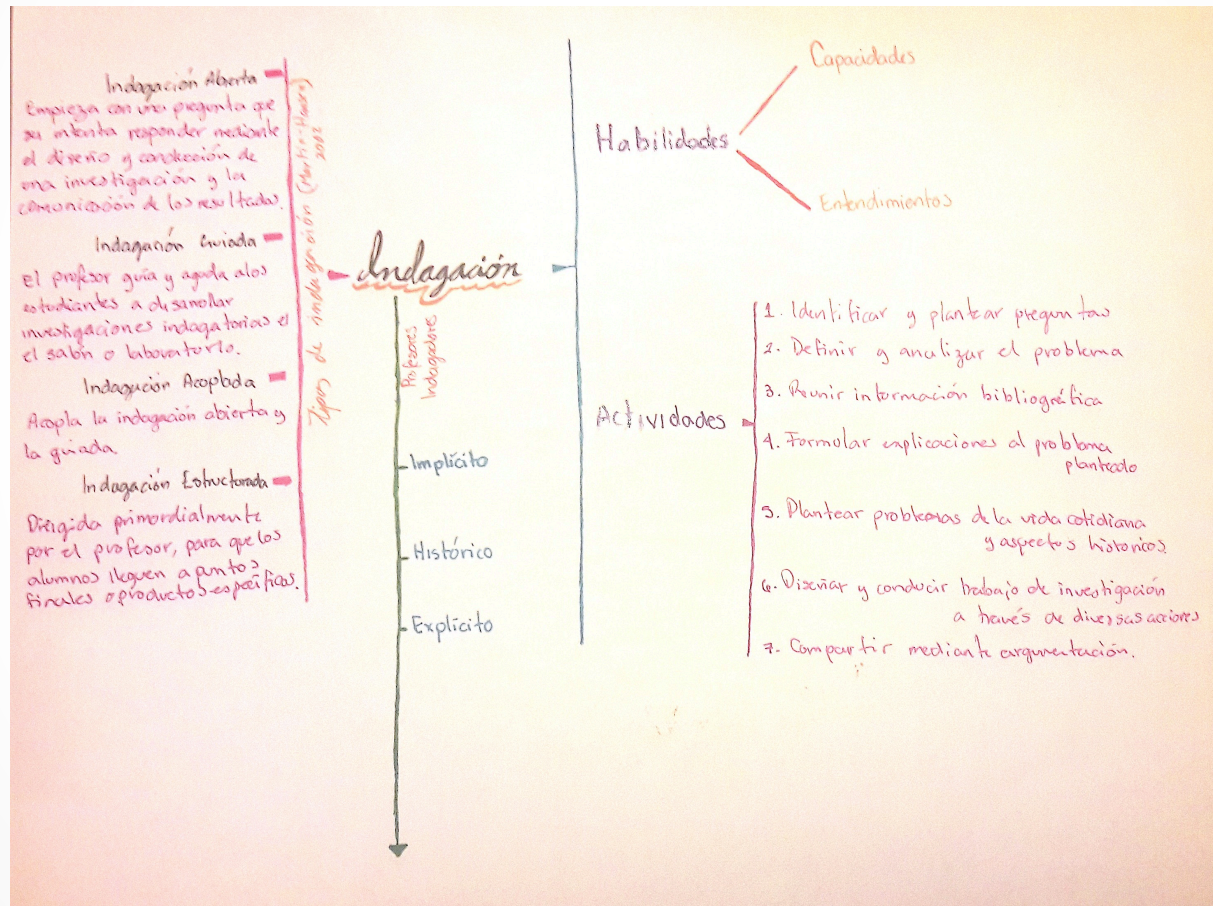 Indagación Abierta
Empieza con una pregunta que
su intenta responder mediante
el diseño y conducción de
una investigación y la
comunicación de los resultados.
Indagación Guiada
el profesor guía y aguda alos
estudiantes a desarrollar
investigaciones indagatorias el
el salón o laboratorio.
Indagación Acoplada
Acopla la indagación abierta y
la guiada.
Indagación Estructurada
Dirigida primordialmente
por el profesor, para que los
alumnos lleguen a puntos
finales o productos especificos.
Tipos de indagación (Martin-Hansen)
2002
Indagación
Profesores
Indagadores
Implícito
Histórico
Explícito
Habilidades
Capacidades
Entendimientos
Actividades
1. Identificar y plantear preguntas
2. Definir y analizar el problema
3. Reunir información bibliográfica
4. Formular explicaciones al problema
planteado
5. Plantear problemas de la vida cotidiana
y aspectos historicos.
6. Diseñar y conducir trabajo de investigación
a través de diversas acciones
7. Compartir mediante argumentación.